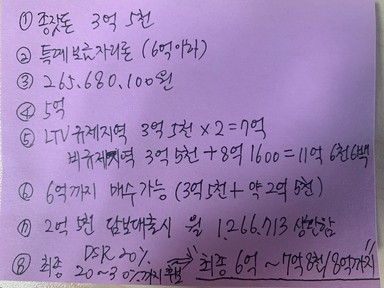 ① 종잣돈 3억 5천
② 특례보금자리론 (6억이하)
③ 265.680.100원
④ 5억
⑤ LTV 규제지역 3억 5천 × 2 = 7억
비규제지역 3억 5천 + 8억 1600 = 11억 6천6백
⑥ 6억까지 매수가능 (3억5천 + 약 2억 5천)
⑦ 2억 5천 담보대출시 월 1,266,713 상환함
⑧ 최종 DSR 20%
20~30%까지 최종 6억 ~ 7억 8천/8억까지